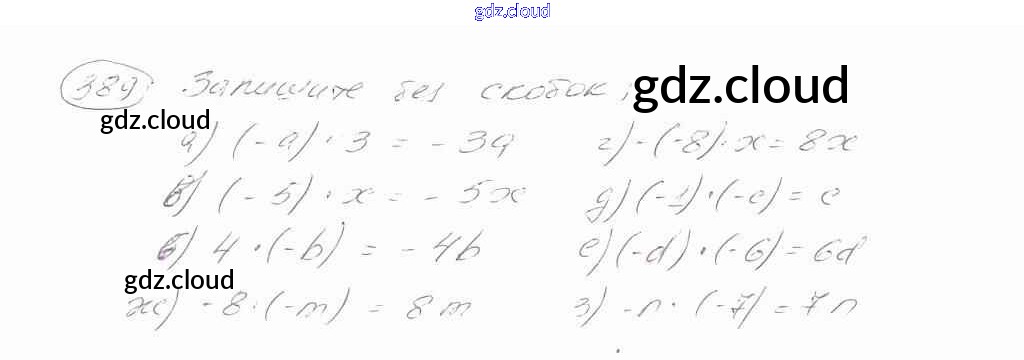 gdz.cloud
389. Запишите без скобок:
gdz.cloud
gdz.cloud
а) (-a) · 3 = - 3a
г) - (-8) · x = 8x
б) (- 5) · x = - 5x
д) (-1) · (-c) = c
в) 4 · (-b) = - 4b
е) (-d) · (-6) = 6d
gdz.cloud
ж) - 8 · (-m) = 8m
з) -n · (-7) = 7n